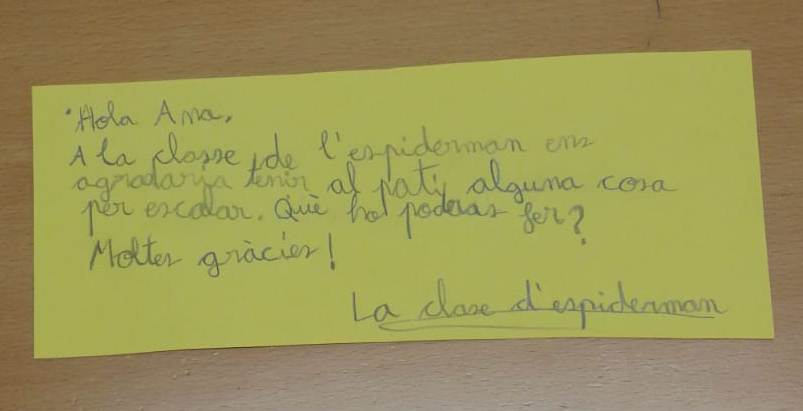 Hola Anna,
A la classe de l'espiderman ens
agradaria tenir al pati alguna cosa
per escalar. Què ho podras fer?
Moltes gràcies!
La clase d'espiderman